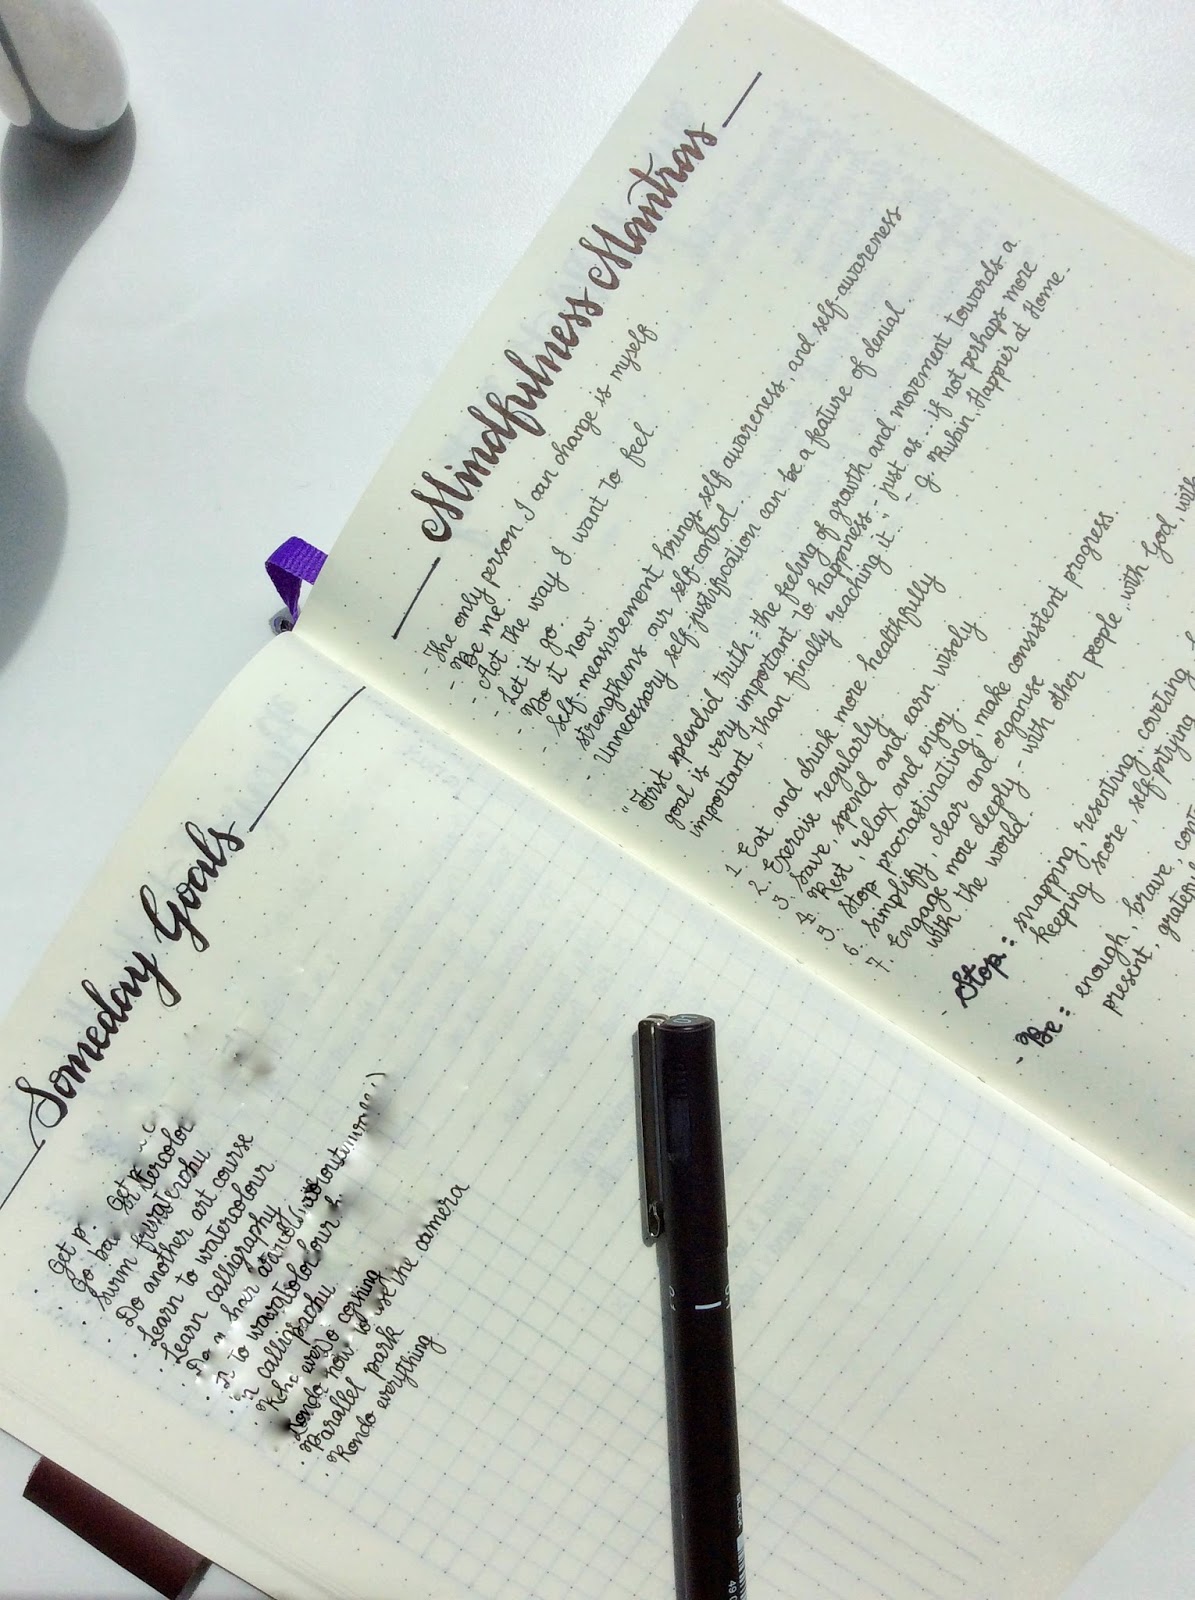 Mindfulness Mantras
- The only person I can change is myself.
- Be me.
- Act the way I want to feel.
- Let it go.
- Do it now
- Self-measurement brings self awareness, and self-awareness
strengthens our self-control.
- Unnecessary self-justification can be a feature of denial.
"First splendid truth: the feeling of growth and movement towards a
goal is very important to happiness - just as... if not perhaps more
important, than finally reaching it.." ~ G. Rubin, Happier at Home.
1. Eat and drink more healthfully
2. Exercise regularly
3. Save, spend and earn wisely
4. Rest, relax and enjoy.
5. Stop procrastinating, make consistent progress.
6. Simplify, clear and organise
7. Engage more deeply - with other people, with God, with
with the world.
- Stop: snapping, resenting, coveting,
keeping score, self-pitying
- Be: enough, brave,
present,
Someday Goals
· Get
· Go
· Do another art course
· Learn to watercolour
· Learn calligraphy
to use the camera
· Parallel park
· Kondo everything